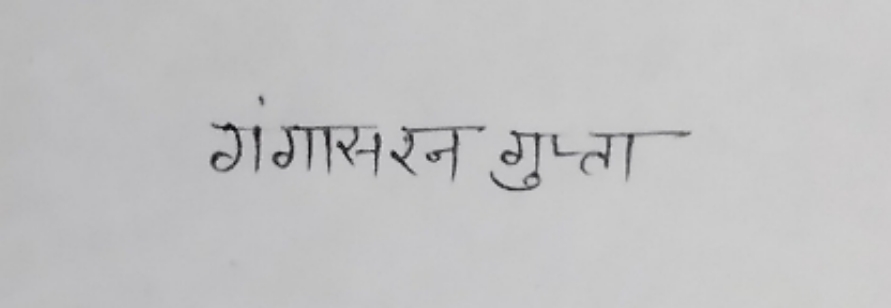 गंगासरन गुप्ता